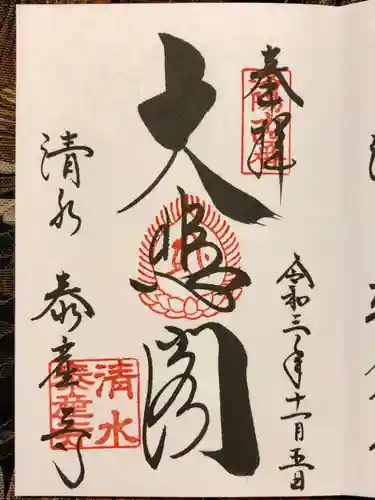 奉拝
令和三年十一月五日
大悲閣
清水
泰産寺
清水
泰産寺